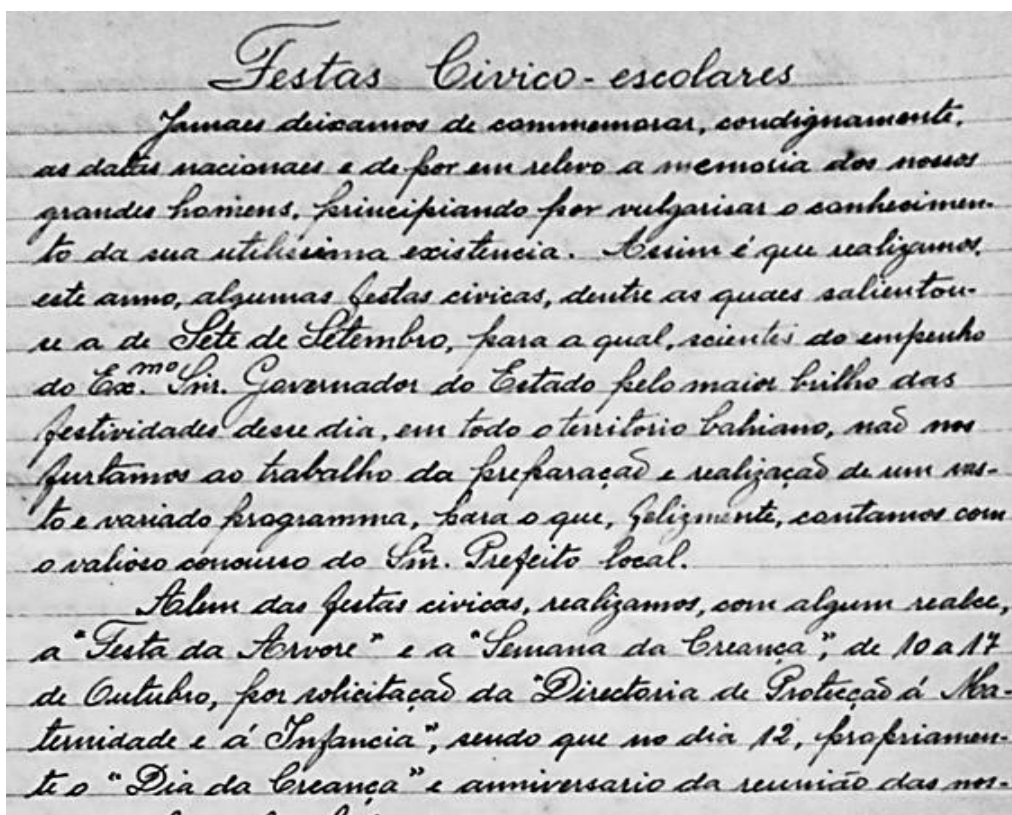 Festas Civico-escolares
Jamaes deixamos de commemorar, condignamente,
as datas nacionaes e de por em relevo a memoria dos nossos
grandes homens, principiando por vulgarisar o conhecimen-
to da sua utilissima existencia. Assim é que realizamos,
este anno, algumas festas civicas, dentre as quaes salientou-
se a de Séte de Sétembro, para a qual, scientes do empenho
do Ex.mo Snr. Governador do Estado pelo maior brilho das
festividades desse dia, em todo o territorio bahiano, naõ nos
furtamos ao trabalho da preparaçaõ e realizaçaõ de um vas-
to e variado programma, para o que, felizmente, contamos com
o valioso concurso do Snr. Prefeito local.
Alem das festas civicas, realizamos, com algum realce,
a "Festa da Arvore" e a "Semana da Creança", de 10 a 17
de Outubro, por solicitaçaõ da "Directoria de Protecçaõ á Ma-
ternidade e á Infancia", sendo que no dia 12, propriamen-
te o "Dia da Creança" e anniversario da reunião das nos-